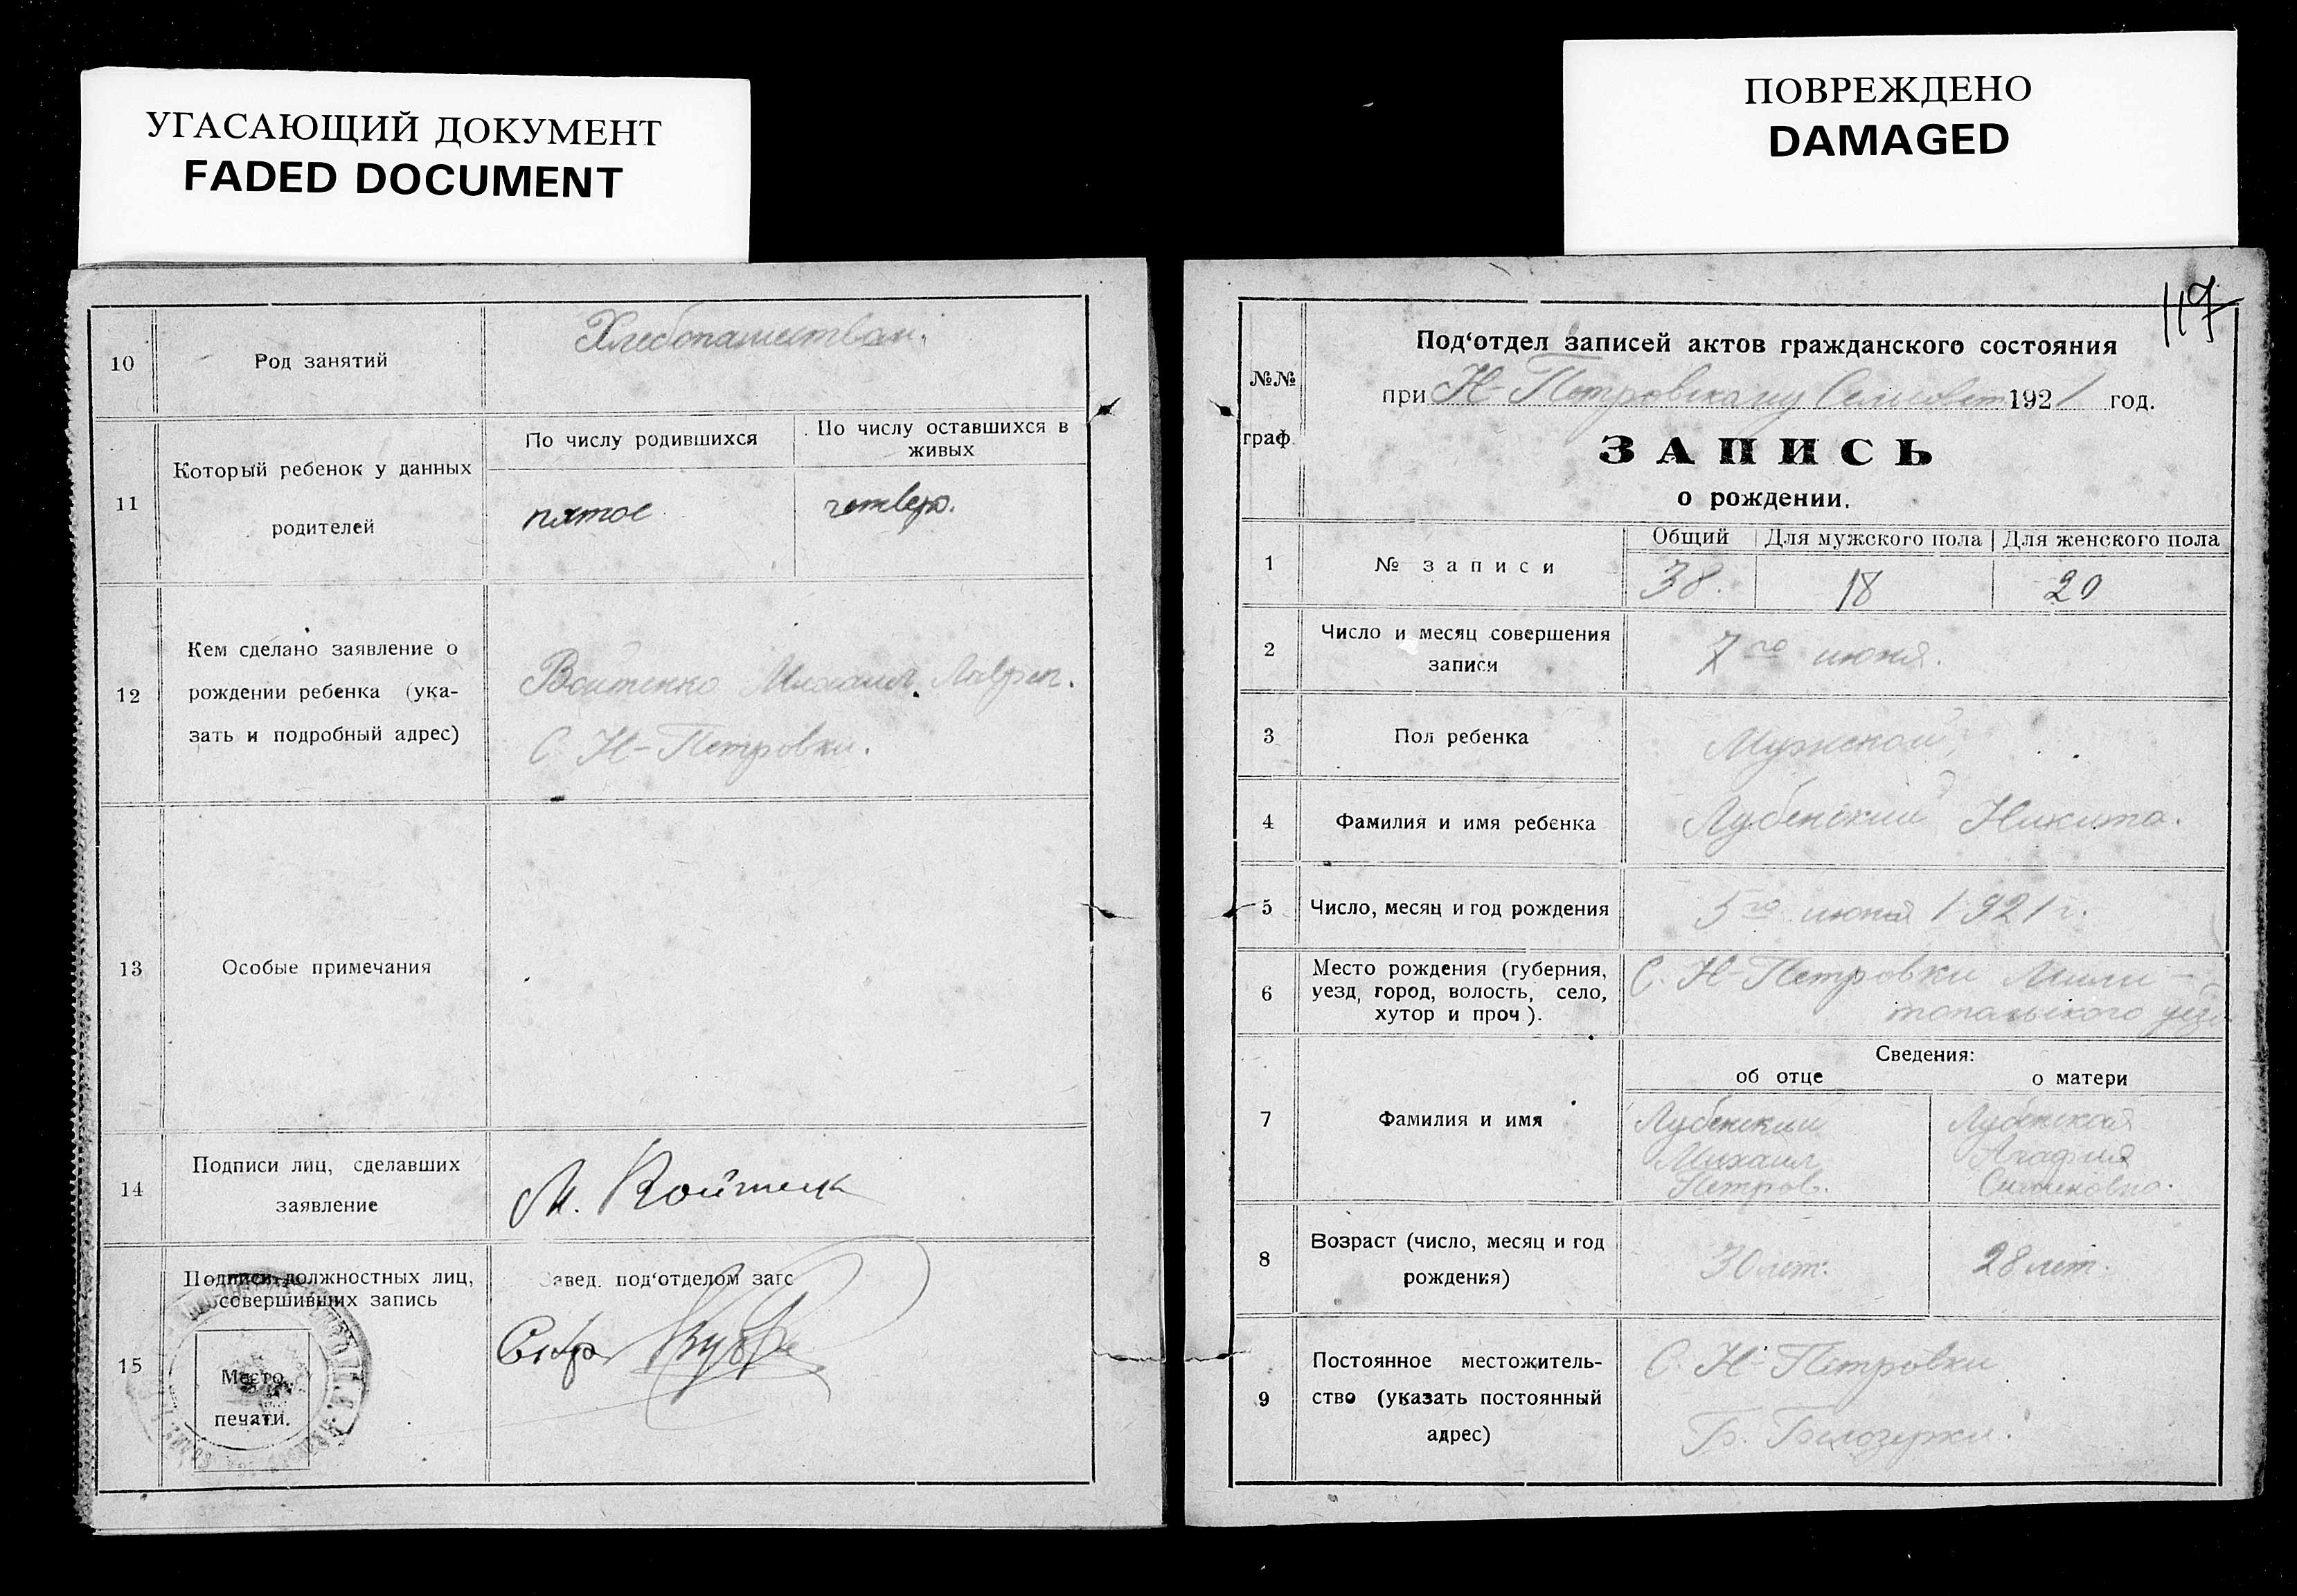 УГАСАЮЩИЙ ДОКУМЕНТ
FADED DOCUMENT
ПОВРЕЖДЕНО
DAMAGED
10
Род занятий
Хлебопашеством.
11
Который ребенок у данных
родителей
По числу родившихся
По числу оставшихся в
живых
пятое
четверо.
12
Кем сделано заявление о
рождении ребенка (ука-
зать и подробный адрес)
Войтенко Михаил Лаврен.
С. Н-Петровки.
13
Особые примечания
14
Подписи лиц, сделавших
заявление
М. Войтенк
15
Подписи должностных лиц,
совершивших запись
Место
печати.
Завед. под‘отделом загс
117
№№
граф.
Под‘отдел записей актов гражданского состояния
при Н-Петровскому 1921 год.
ЗАПИСЬ
о рождении.
1
№ записи
Общий
Для мужского пола
Для женского пола
38.
18
20
2
Число и месяц совершения
записи
7го июня.
3
Пол ребенка
Мужской
4
Фамилия и имя ребенка
Лубенский Никита.
5
Число, месяц и год рождения
5го июня 1921 г.
6
Место рождения (губерния,
уезд, город, волость, село,
хутор и проч.).
С. Н-Петровки Мили-
топальского уез
7
Фамилия и имя
Сведения:
об отце
о матери
Лубенский
Михаил
Петров.
Лубенская
Агафия
Симоновна.
8
Возраст (число, месяц и год
рождения)
30 лет.
28 лет.
9
Постоянное местожитель-
ство (указать постоянный
адрес)
С. Н-Петровки
Б. Билозерки.